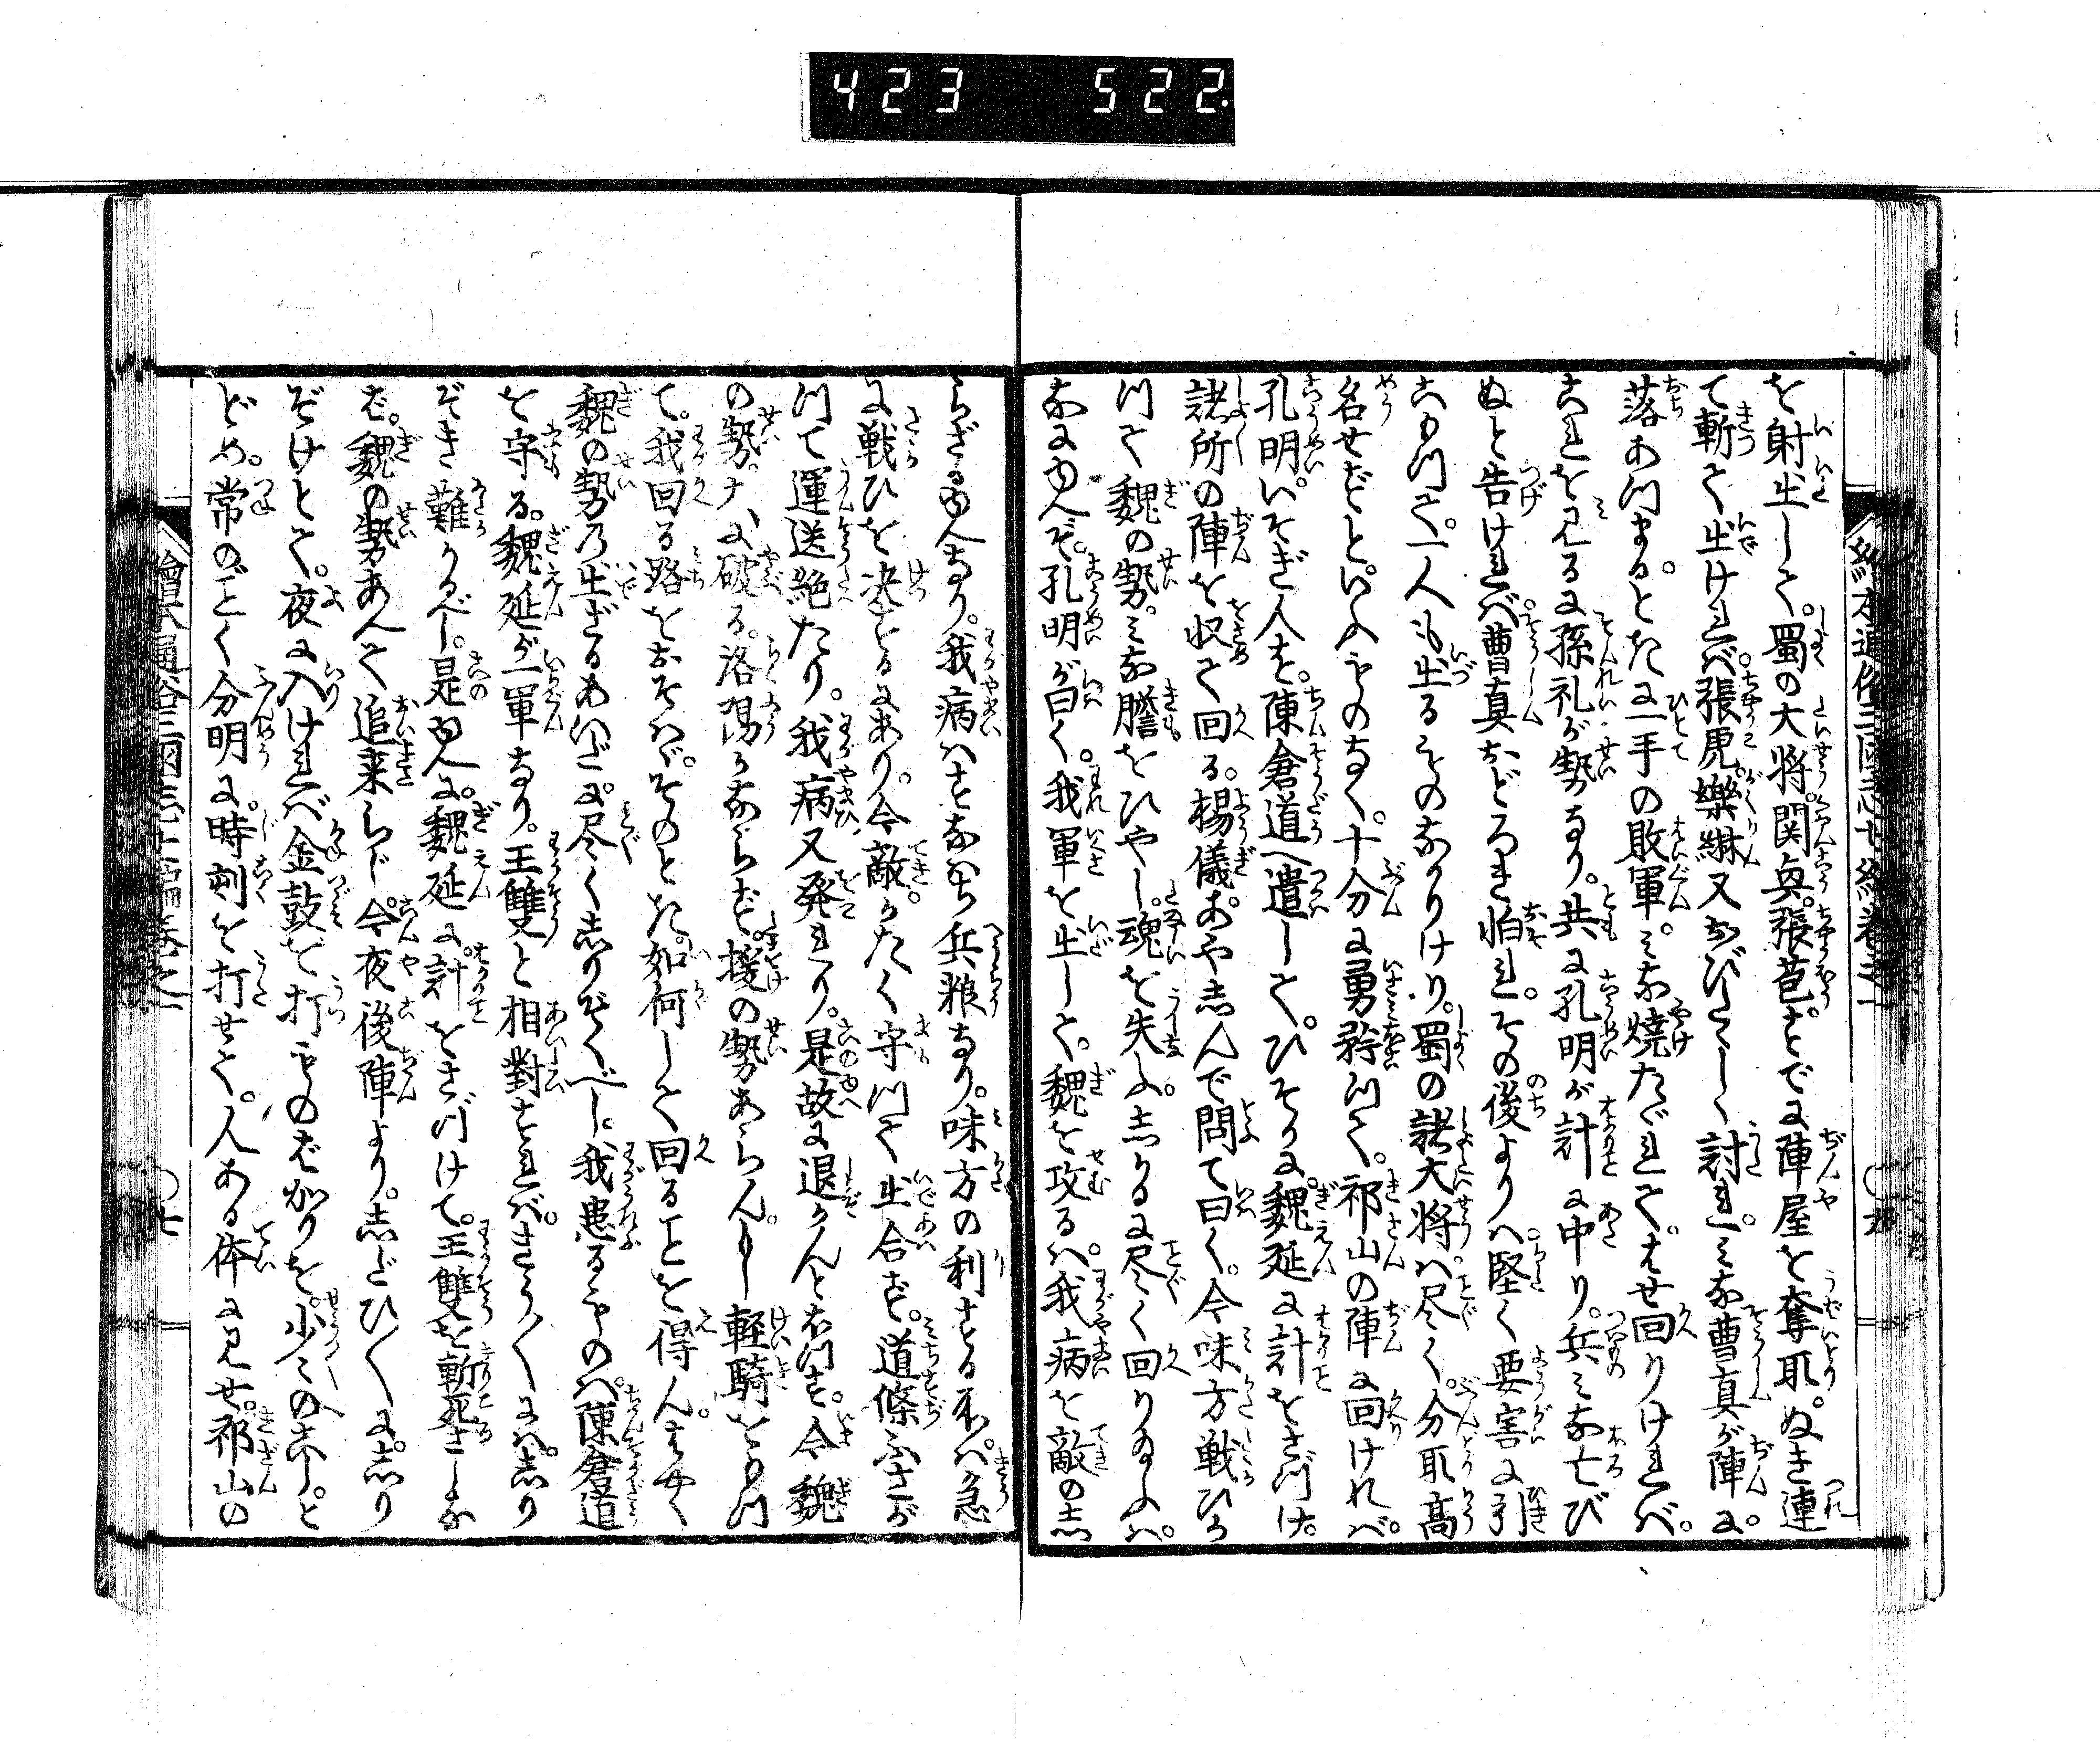 423 522.
を射出して。蜀の大将関興。張苞。すでに陣屋を奪取。ぬき連
て斬て出ければ。張虎。樂綝又おびたゝしく討れ。みな曹真が陣に。
落あつまる。ときに一手の敗軍。みな焼たゞれて。はせ回りければ。
これを見るに孫礼が勢なり。共に孔明が計に中り。兵みな亡び
ぬと告ければ。曹真おどろき怕れ。その後よりハ堅く要害に引
こもつて。一人も出るものなかりけり。蜀の諸大将ハ尽く。分取高
名せずといふものなく。十分に勇矜つて。祁山の陣に回ければ。
孔明。いそぎ人を。陳倉道へ遣して。ひそかに。魏延に計をさづけ。
諸所の陣を収て回る。楊儀。あやしんで問て曰く。今味方戦ひか
つて魏の勢。みな膽をひやし。魂を失ふ。しかるに尽く回りたまふハ。
なにゆへぞ。孔明が曰く。我軍を出して。魏を攻るハ。我病を敵のし
らざるゆへなり。我病ハすなハち兵粮なり。味方の利する所ハ。急
に戦ひを决するにあり。今敵。かたく守つて出合ず。道條ふさが
つて運送絶たり。我病又発れり。是故に退かんと欲す。今魏
の勢。大に破る。洛陽かならず。援の勢あらん。もし軽騎をもつ
て。我回る路をおそハゞ。そのとき。如何して回ることを得ん。はやく
魏の勢乃。出ざるあいだに。尽くしりぞくべし。我患るものハ。陳倉道
を守る。魏延が一軍なり。王雙と相對すれば。きう〳〵にハ。しり
ぞき難かるべし。是ゆへに。魏延に計をさづけて。王雙を斬死さしめ
ば。魏の勢あへて追来らじ。今夜後陣より。しどひ〳〵に。しり
ぞけとて。夜に入ければ金鼓を打ものばかりを。少〻のこしとゞめ。
どめ。常のごとく分明に。時刻を打せて。人ある体に見せ。祁山の
繪本通俗三國志七編巻之一
七